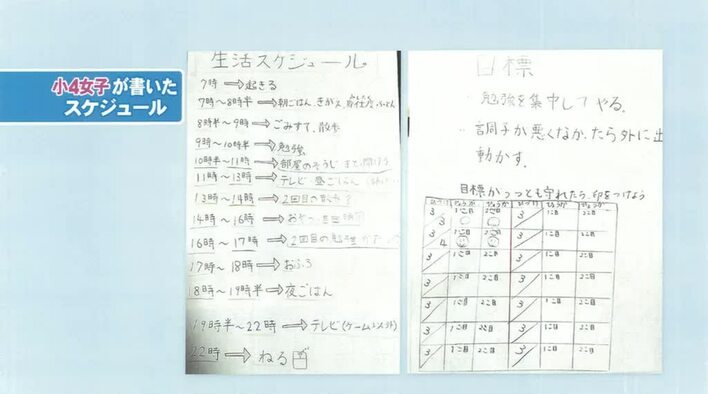 小4女子が書いた
スケジュール
生活スケジュール
7時→起きる
7時～8時半→朝ごはん きがえ
8時半～9時→ごみすて、散歩
9時～10時半→勉強
10時半～11時→部屋のそうじ
11時～13時→テレビ 昼ごはん
13時～14時→2回目の散歩
14時～16時→おやつ 自由時間
16時～17時→2回目の勉強
17時～18時→おふろ
18時～19時半→夜ごはん
19時半～22時→テレビ(ゲーム
22時→ねる
目標
・勉強を集中してやる。
・調子が悪くなかったら外に出
動かす。
目標が1つでも守れたら、印をつけよう
ひづけ 1こ目 2こ目 ひづけ 1こ目 2こ目
3/3 1こ目 2こ目 3/ 1こ目 2こ目
3/4 3/ 1こ目 2こ目
3/ 1こ目 2こ目 3/ 1こ目 2こ目
3/ 1こ目 2こ目 3/ 1こ目 2こ目
3/ 1こ目 2こ目 3/ 1こ目 2こ目
3/ 1こ目 2こ目 3/ 1こ目 2こ目
3/ 1こ目 2こ目 3/ 1こ目 2こ目